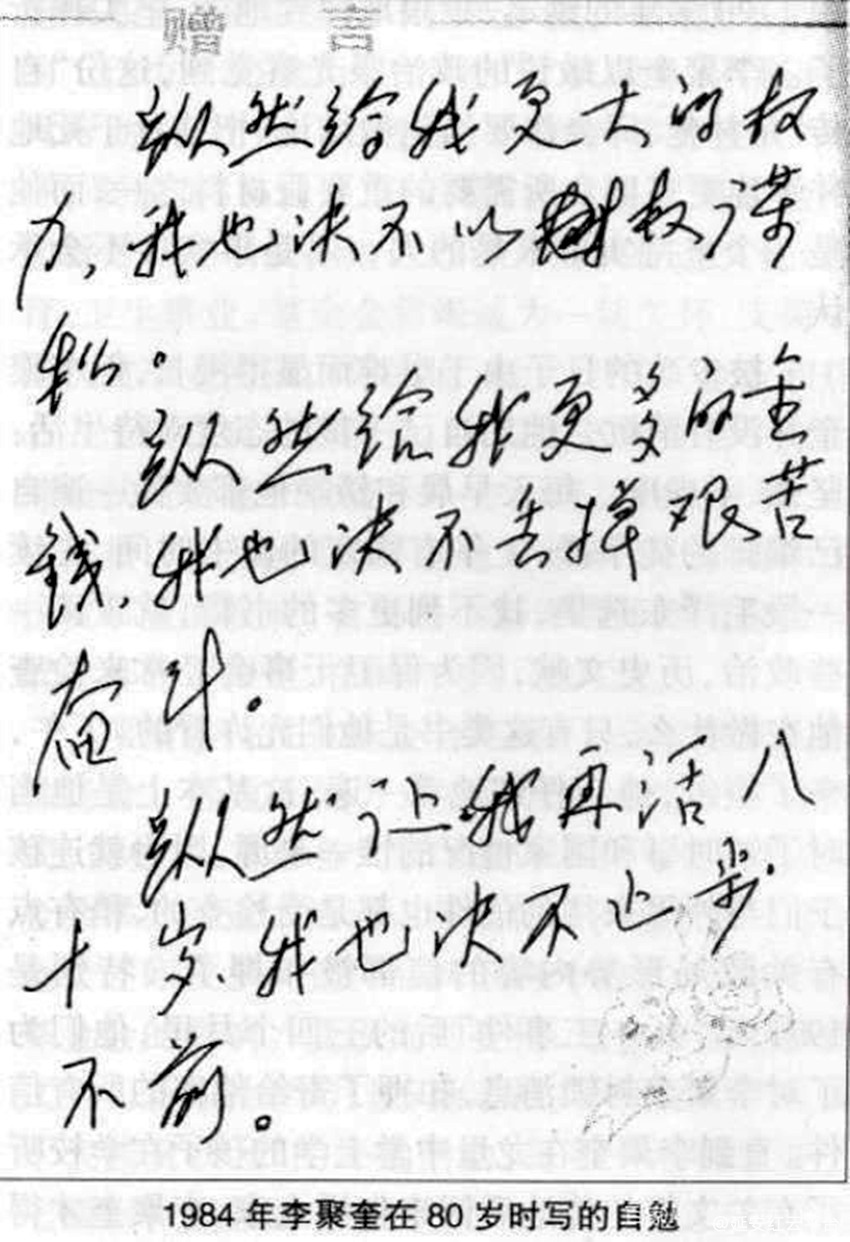 赠言
纵然给我更大的权
力，我也决不以权谋
私。
纵然给我更多的金
钱，我也决不丢掉艰苦
奋斗。
纵然让我再活八
十岁，我也决不止步
不前。
1984年李聚奎在80岁时写的自勉